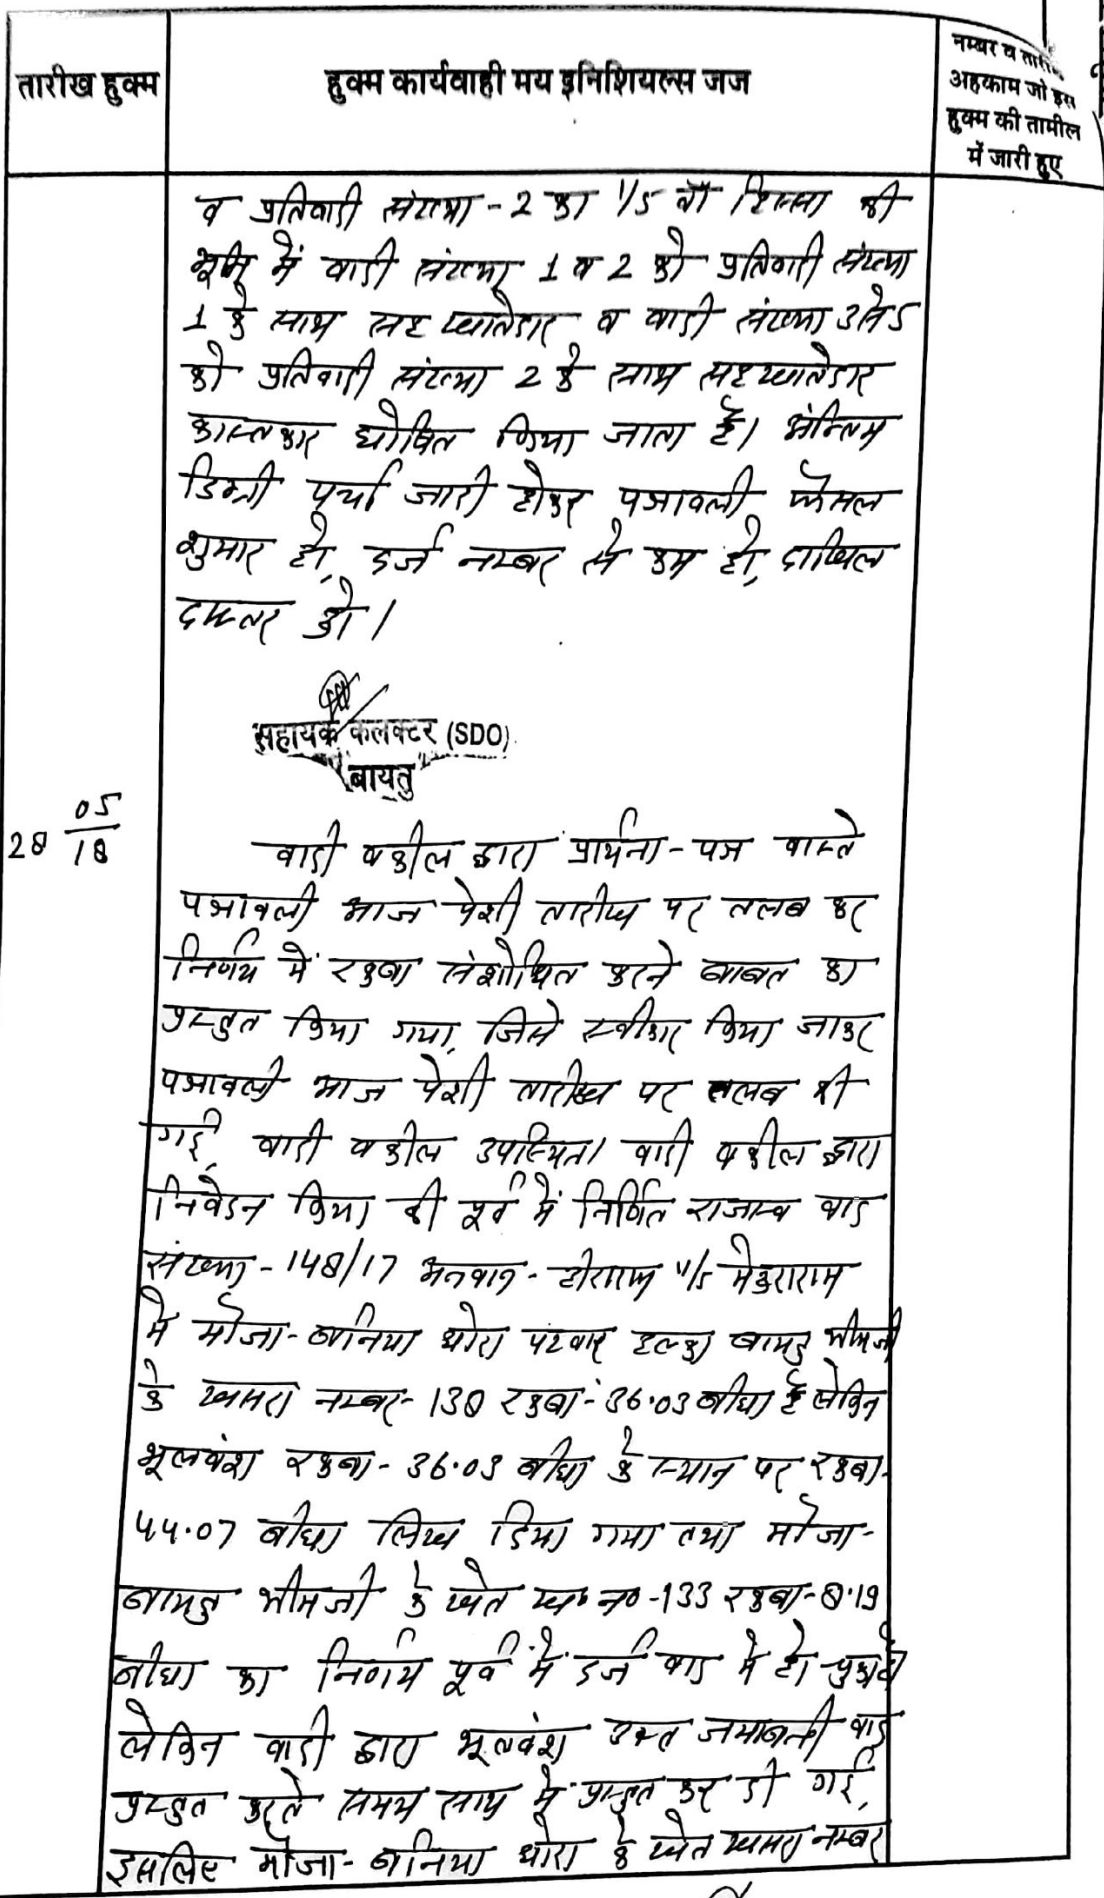 तारीख हुक्म
हुक्म कार्यवाही मय इनिशियल्स जज
नम्बर व तारीख
अहकाम जो इस
हुक्म की तामील
में जारी हुए
व प्रतिवादी संख्या - 2 का 1/5 वाँ हिस्सा की
भूमि में वादी संख्या 1 व 2 को प्रतिवादी संख्या
1 के साथ सह खातेदार व वादी संख्या 3 से 5
को प्रतिवादी संख्या 2 के साथ सह खातेदार
काश्तकार घोषित किया जाता है। अन्तिम
डिक्री पर्चा जारी होकर पत्रावली फैसल
शुमार हो, दर्ज नम्बर से कम हो, दाखिल
दफ्तर हो।
सहायक कलक्टर (SDO)
बायतु
28 05/18
वादी वकील द्वारा प्रार्थना - पत्र वास्ते
पत्रावली आज पेशी तारीख पर तलब कर
निर्णय में रकबा संशोधित करने बाबत का
प्रस्तुत किया गया, जिसे स्वीकार किया जाकर
पत्रावली आज पेशी तारीख पर तलब की
गई, वादी वकील उपस्थित। वादी वकील द्वारा
निवेदन किया की पूर्व में निर्णित राजस्व वाद
संख्या - 148/17 अनवान - हीराराम v/s मेकाराम
मे मौजा - बानिया धोरा पटवार हल्का बायतु भीमजी
के खसरा नम्बर - 130 रकबा - 36.03 बीघा है लेकिन
भूलवंश रकबा - 36.03 बीघा के स्थान पर रकबा -
44.07 बीघा लिख दिया गया तथा मौजा -
बायतु भीमजी के खेत ख॰ न॰ - 133 रकबा - 8.19
बीघा का निर्णय पूर्व में दर्ज वाद मे हो चुका है
लेकिन वादी द्वारा भूलवंश उक्त जमाबन्दी वाद
प्रस्तुत करते समय साथ में प्रस्तुत कर दी गई,
इसलिए मौजा - बानिया धोरा के खेत खसरा नम्बर